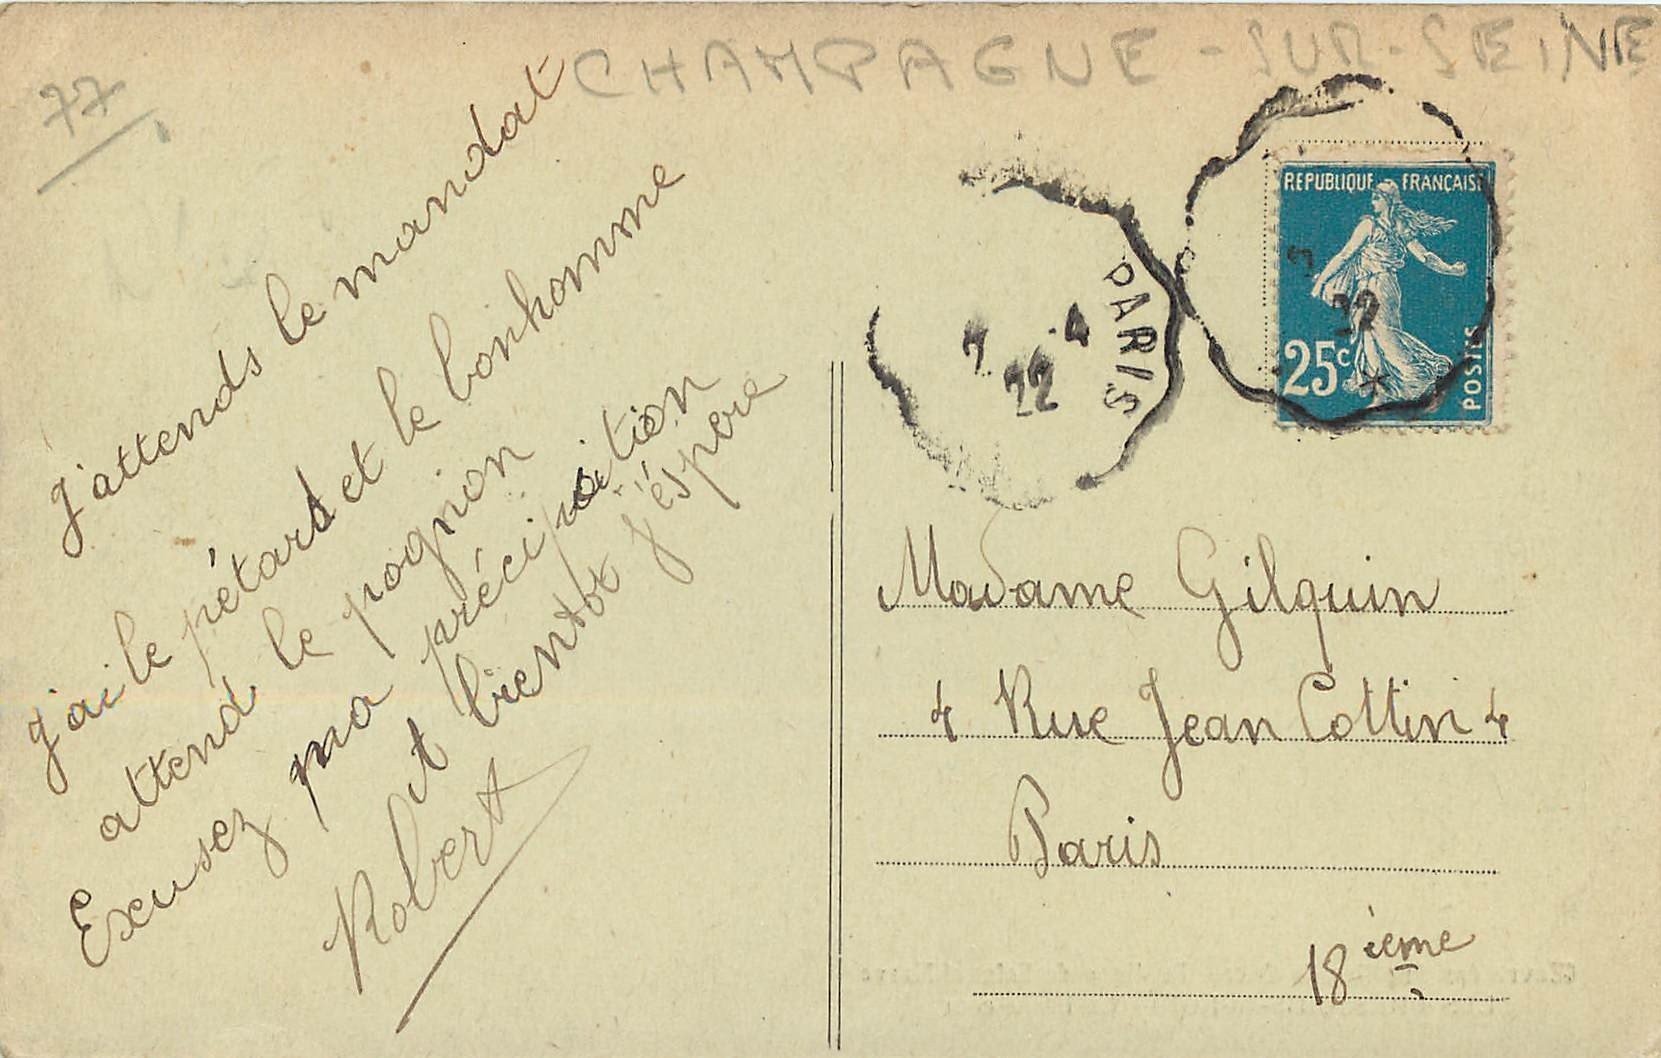 77
CHAMPAGNE - SUR - SEINE
J'attends le mandat
J'ai le pétard et le bonhomme
attend le pognon
Excusez ma précipitation
et bientot j'éspere
Robert
PARIS
7 4
22
REPUBLIQUE FRANÇAISE
25c POSTES
22
Madame Gilquin
4 Rue Jean Cottin 4
Paris
18ième